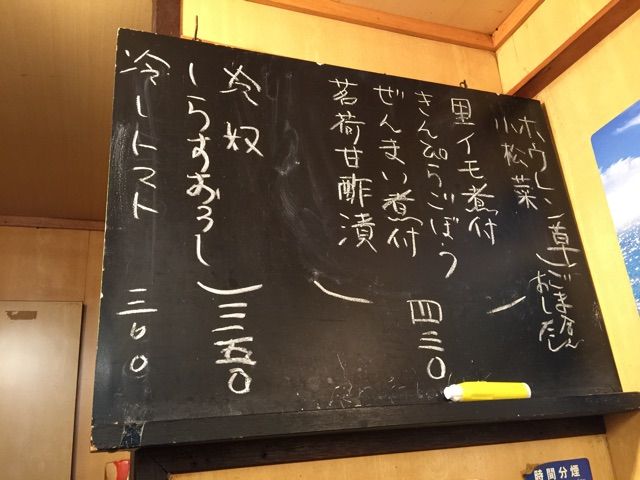 ホウレン草
小松菜
ごまあえ
おひたし
里イモ煮付
きんぴらごぼう
ぜんまい煮付
茗荷甘酢漬
四三〇
冷奴
しらすおろし
三五〇
冷しトマト 三〇〇
時間分煙